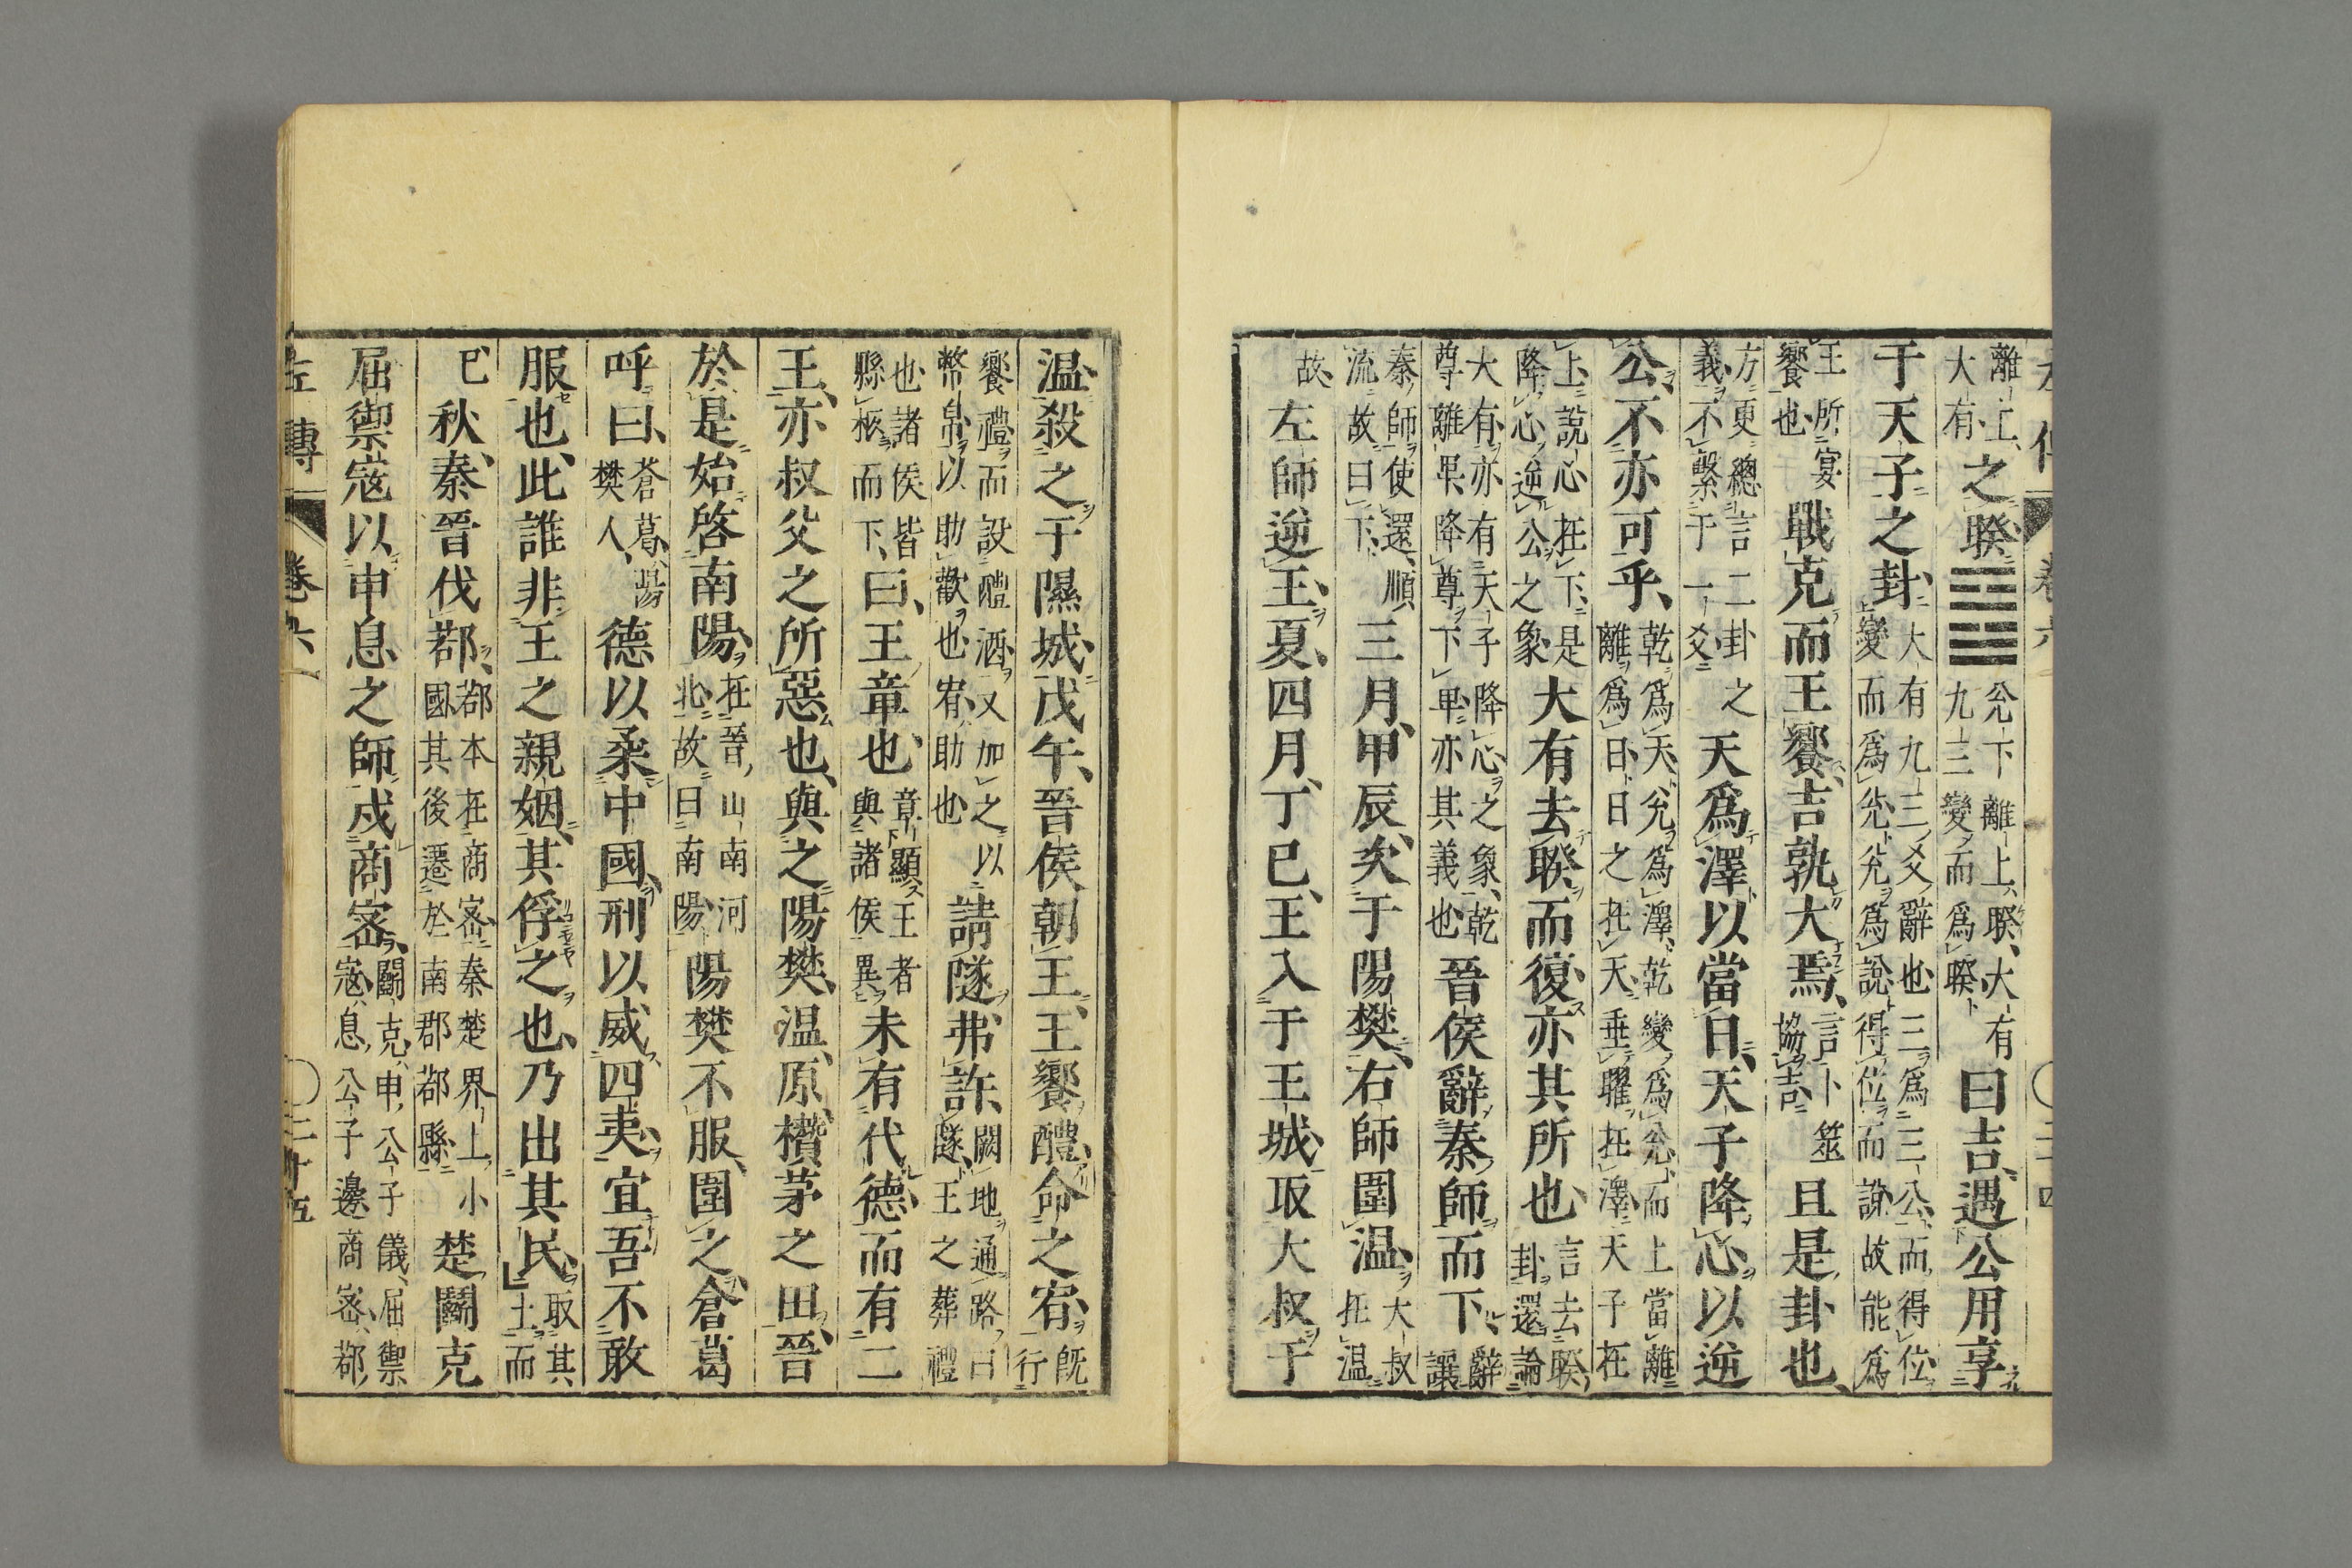 離上大有之睽兊下離上睽大有九三變而爲睽曰吉遇公用享
于天子之卦大有九三爻辭也三爲三公而得位變而爲兊兊爲說得位而說故能爲
王所宴饗也戰克而王饗吉孰大焉言卜筮協吉且是卦也
方更總言二卦之義不繫于一爻天爲澤以當日天子降心以逆
公不亦可乎乾爲天兊爲澤乾變爲兊而上當離離爲日日之在天垂曜在澤天子在
上說心在下是降心逆公之象大有去睽而復亦其所也言去睽卦還論
大有亦有天子降心之象乾尊離卑降尊下卑亦其義也晉侯辭秦師而下辭讓
秦師使還順流故曰下三月甲辰次于陽樊右師圍温大叔在温
故左師逆王夏四月丁巳王入于王城取大叔于
温殺之于隰城戊午晉侯朝王王饗醴命之宥既行
饗禮而設醴酒又加之以幣帛以助歡也宥助也請隧弗許闕地通路曰隧王之葬禮
也諸侯皆縣柩而下曰王章也章顯王者與諸侯異未有代德而有二
王亦叔父之所惡也與之陽樊温原欑茅之田晉
於是始啓南陽在晉山南河北故曰南陽陽樊不服圍之倉葛
呼曰蒼葛陽樊人德以柔中國刑以威四夷宜吾不敢
服也此誰非王之親姻其俘之也乃出其民取其土而
已秋秦晉伐鄀鄀本在商密秦楚界上小國其後遷於南郡鄀縣楚鬬克
屈禦寇以申息之師戍商密鬬克申公子儀屈禦寇息公子邊商密鄀
左傳 卷六 二十五